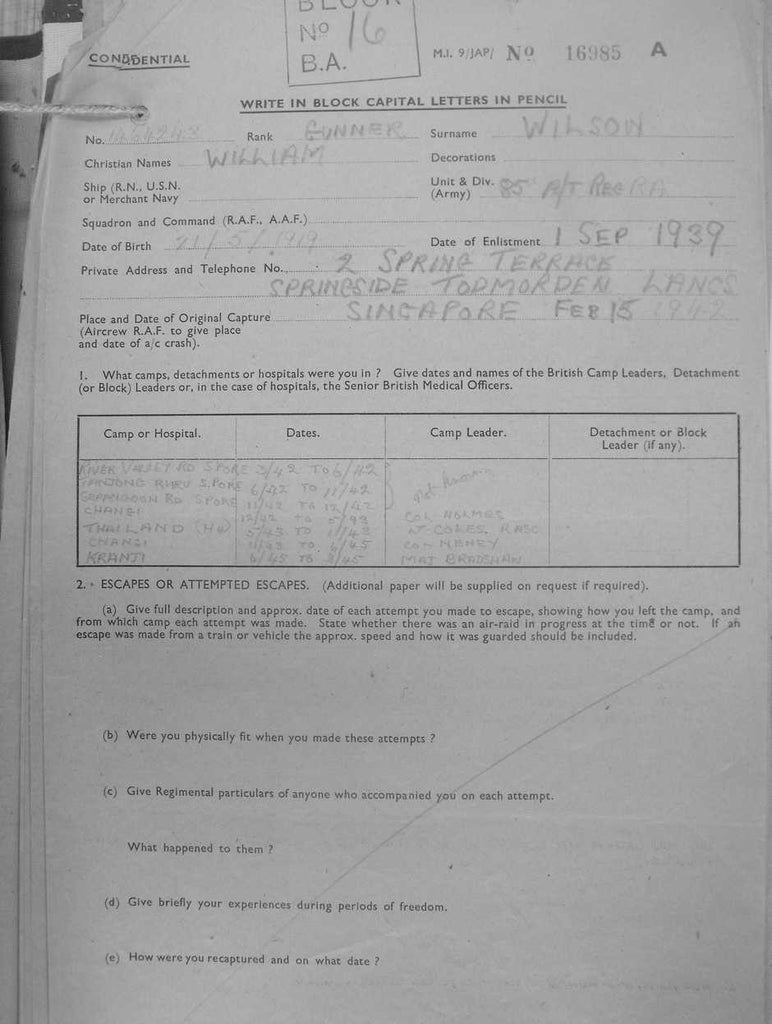 BLOCK
No 16
B.A.
CONFIDENTIAL
M.I. 9/JAP/ No 16985 A
WRITE IN BLOCK CAPITAL LETTERS IN PENCIL
No. Rank GUNNER Surname WILSON
Christian Names WILLIAM Decorations
Ship (R.N., U.S.N. or Merchant Navy
Unit & Div. (Army) 85 A/T REG RA
Squadron and Command (R.A.F., A.A.F.)
Date of Birth 21/5/1919 Date of Enlistment 1 SEP 1939
Private Address and Telephone No. 2 SPRING TERRACE
SPRINGSIDE TODMORDEN LANCS
Place and Date of Original Capture SINGAPORE FEB 15 1942
(Aircrew R.A.F. to give place
and date of a/c crash).
1. What camps, detachments or hospitals were you in ? Give dates and names of the British Camp Leaders, Detachment
(or Block) Leaders or, in the case of hospitals, the Senior British Medical Officers.
Camp or Hospital. Dates. Camp Leader. Detachment or Block
Leader (if any).
RIVER VALLEY RD S'PORE 2/42 TO 6/42
TANJONG RHRU S.PORE 6/42 TO 11/42 not known
RD S'PORE 11/42 TO 12/42
CHANGI 12/42 TO 5/43 COL HOLMES
THAILAND 5/43 TO COLES. RASC
CHANGI TO 6/45 COL
KRANJI 6/45 TO 8/45 MAJ BRADSHAW
2. ESCAPES OR ATTEMPTED ESCAPES. (Additional paper will be supplied on request if required).
(a) Give full description and approx. date of each attempt you made to escape, showing how you left the camp, and
from which camp each attempt was made. State whether there was an air-raid in progress at the time or not. If an
escape was made from a train or vehicle the approx. speed and how it was guarded should be included.
(b) Were you physically fit when you made these attempts ?
(c) Give Regimental particulars of anyone who accompanied you on each attempt.
What happened to them ?
(d) Give briefly your experiences during periods of freedom.
(e) How were you recaptured and on what date ?